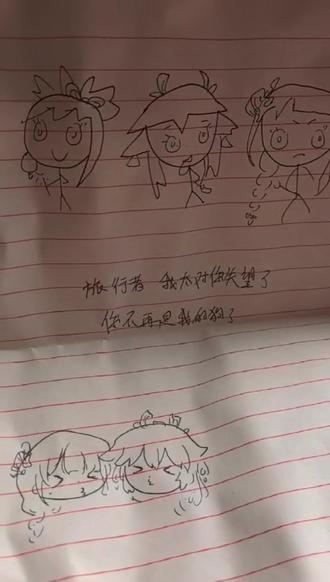 旅行者 我太对你失望了
你不再是我的狗了